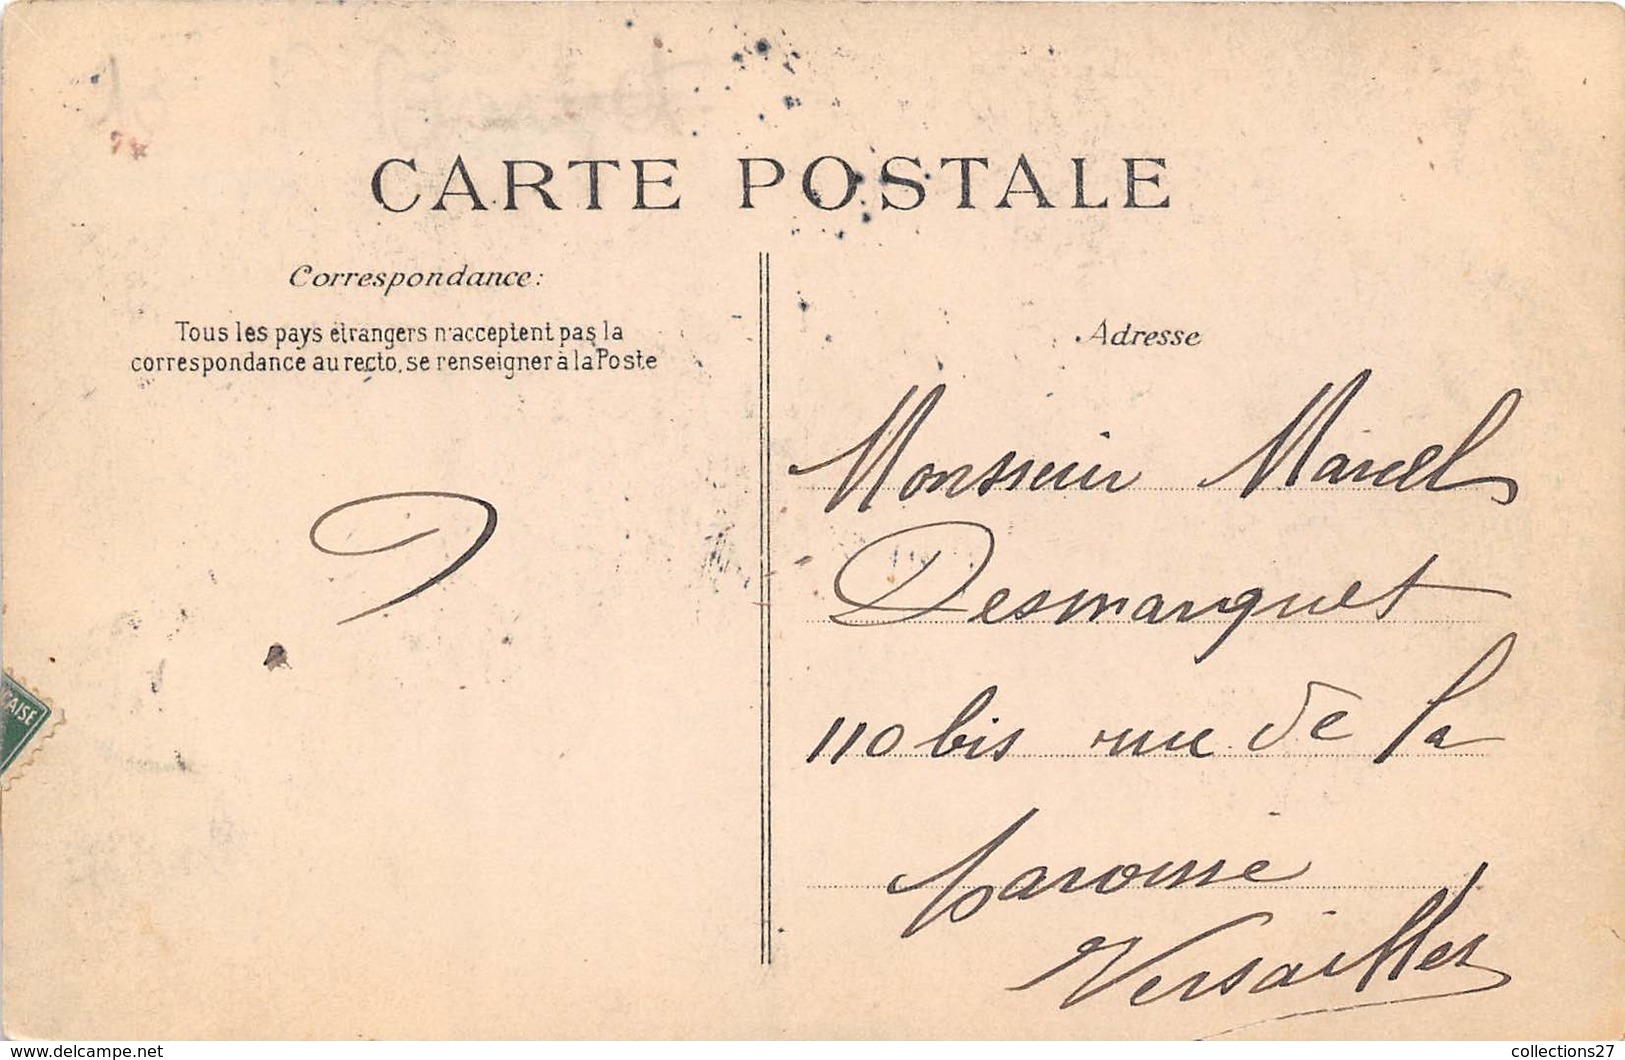 CARTE POSTALE
Correspondance:
Tous les pays étrangers n'acceptent pas la
correspondance au recto, se renseigner à la Poste
Adresse
Monsieur Marcel
Desmarquet
110 bis rue de la
Paroisse
Versailles
AISE
www.delcampe.net
collections27